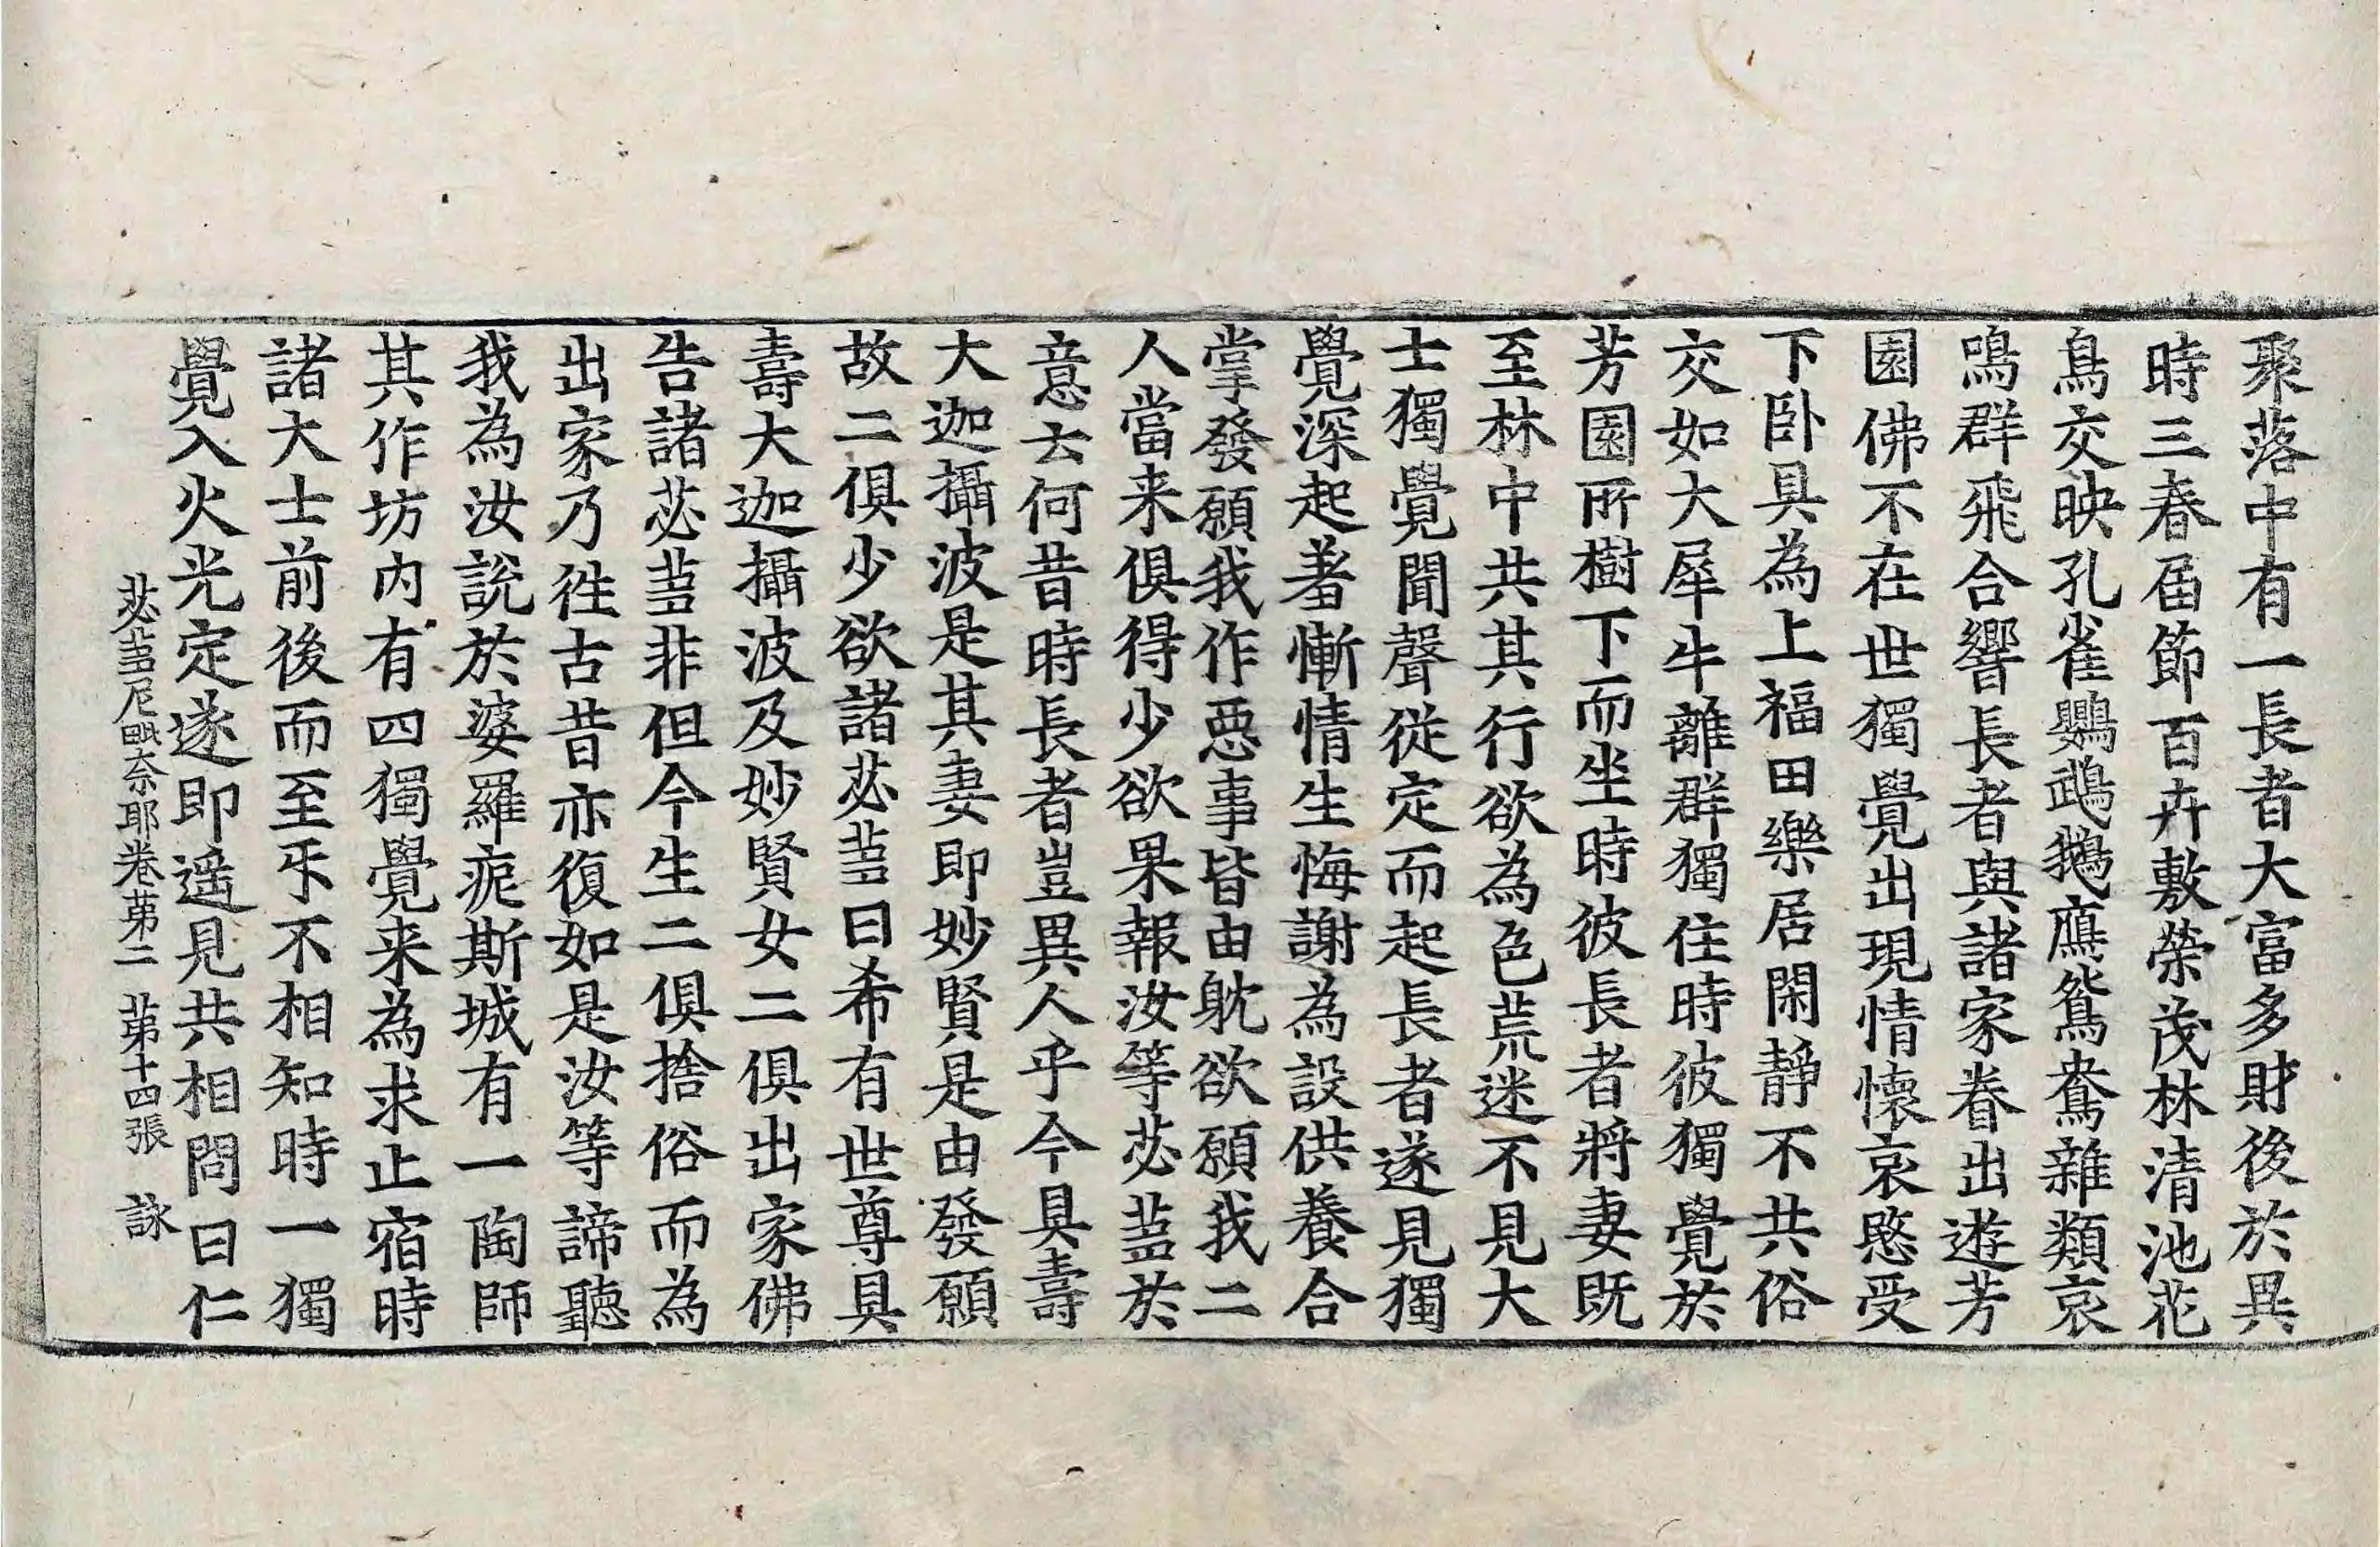 聚落中有一長者大富多財後於異
時三春届節百卉敷榮茂林清池花
鳥交映孔雀鸚鵡鵝鴈鴛鴦雜類哀
鳴群飛合響長者與諸家眷出遊芳
園佛不在世獨覺出現情懷哀愍受
下卧具為上福田樂居閑靜不共俗
交如大犀牛離群獨住時彼獨覺於
芳園所樹下而坐時彼長者將妻既
至林中共其行欲為色荒迷不見大
士獨覺聞聲從定而起長者遂見獨
覺深起羞慚情生悔謝為設供養合
掌發願我作惡事皆由躭欲願我二
人當来俱得少欲果報汝等苾蒭於
意云何昔時長者豈異人乎今具壽
大迦攝波是其妻即妙賢是由發願
故二俱少欲諸苾蒭曰希有世尊具
壽大迦攝波及妙賢女二俱出家佛
告諸苾蒭非但今生二俱捨俗而為
出家乃徃古昔亦復如是汝等諦聽
我為汝說於婆羅痆斯城有一陶師
其作坊內有四獨覺来為求止宿時
諸大士前後而至㸦不相知時一獨
覺入火光定遂即遥見共相問曰仁
苾蒭尼毗奈耶卷苐二 苐十四張 詠